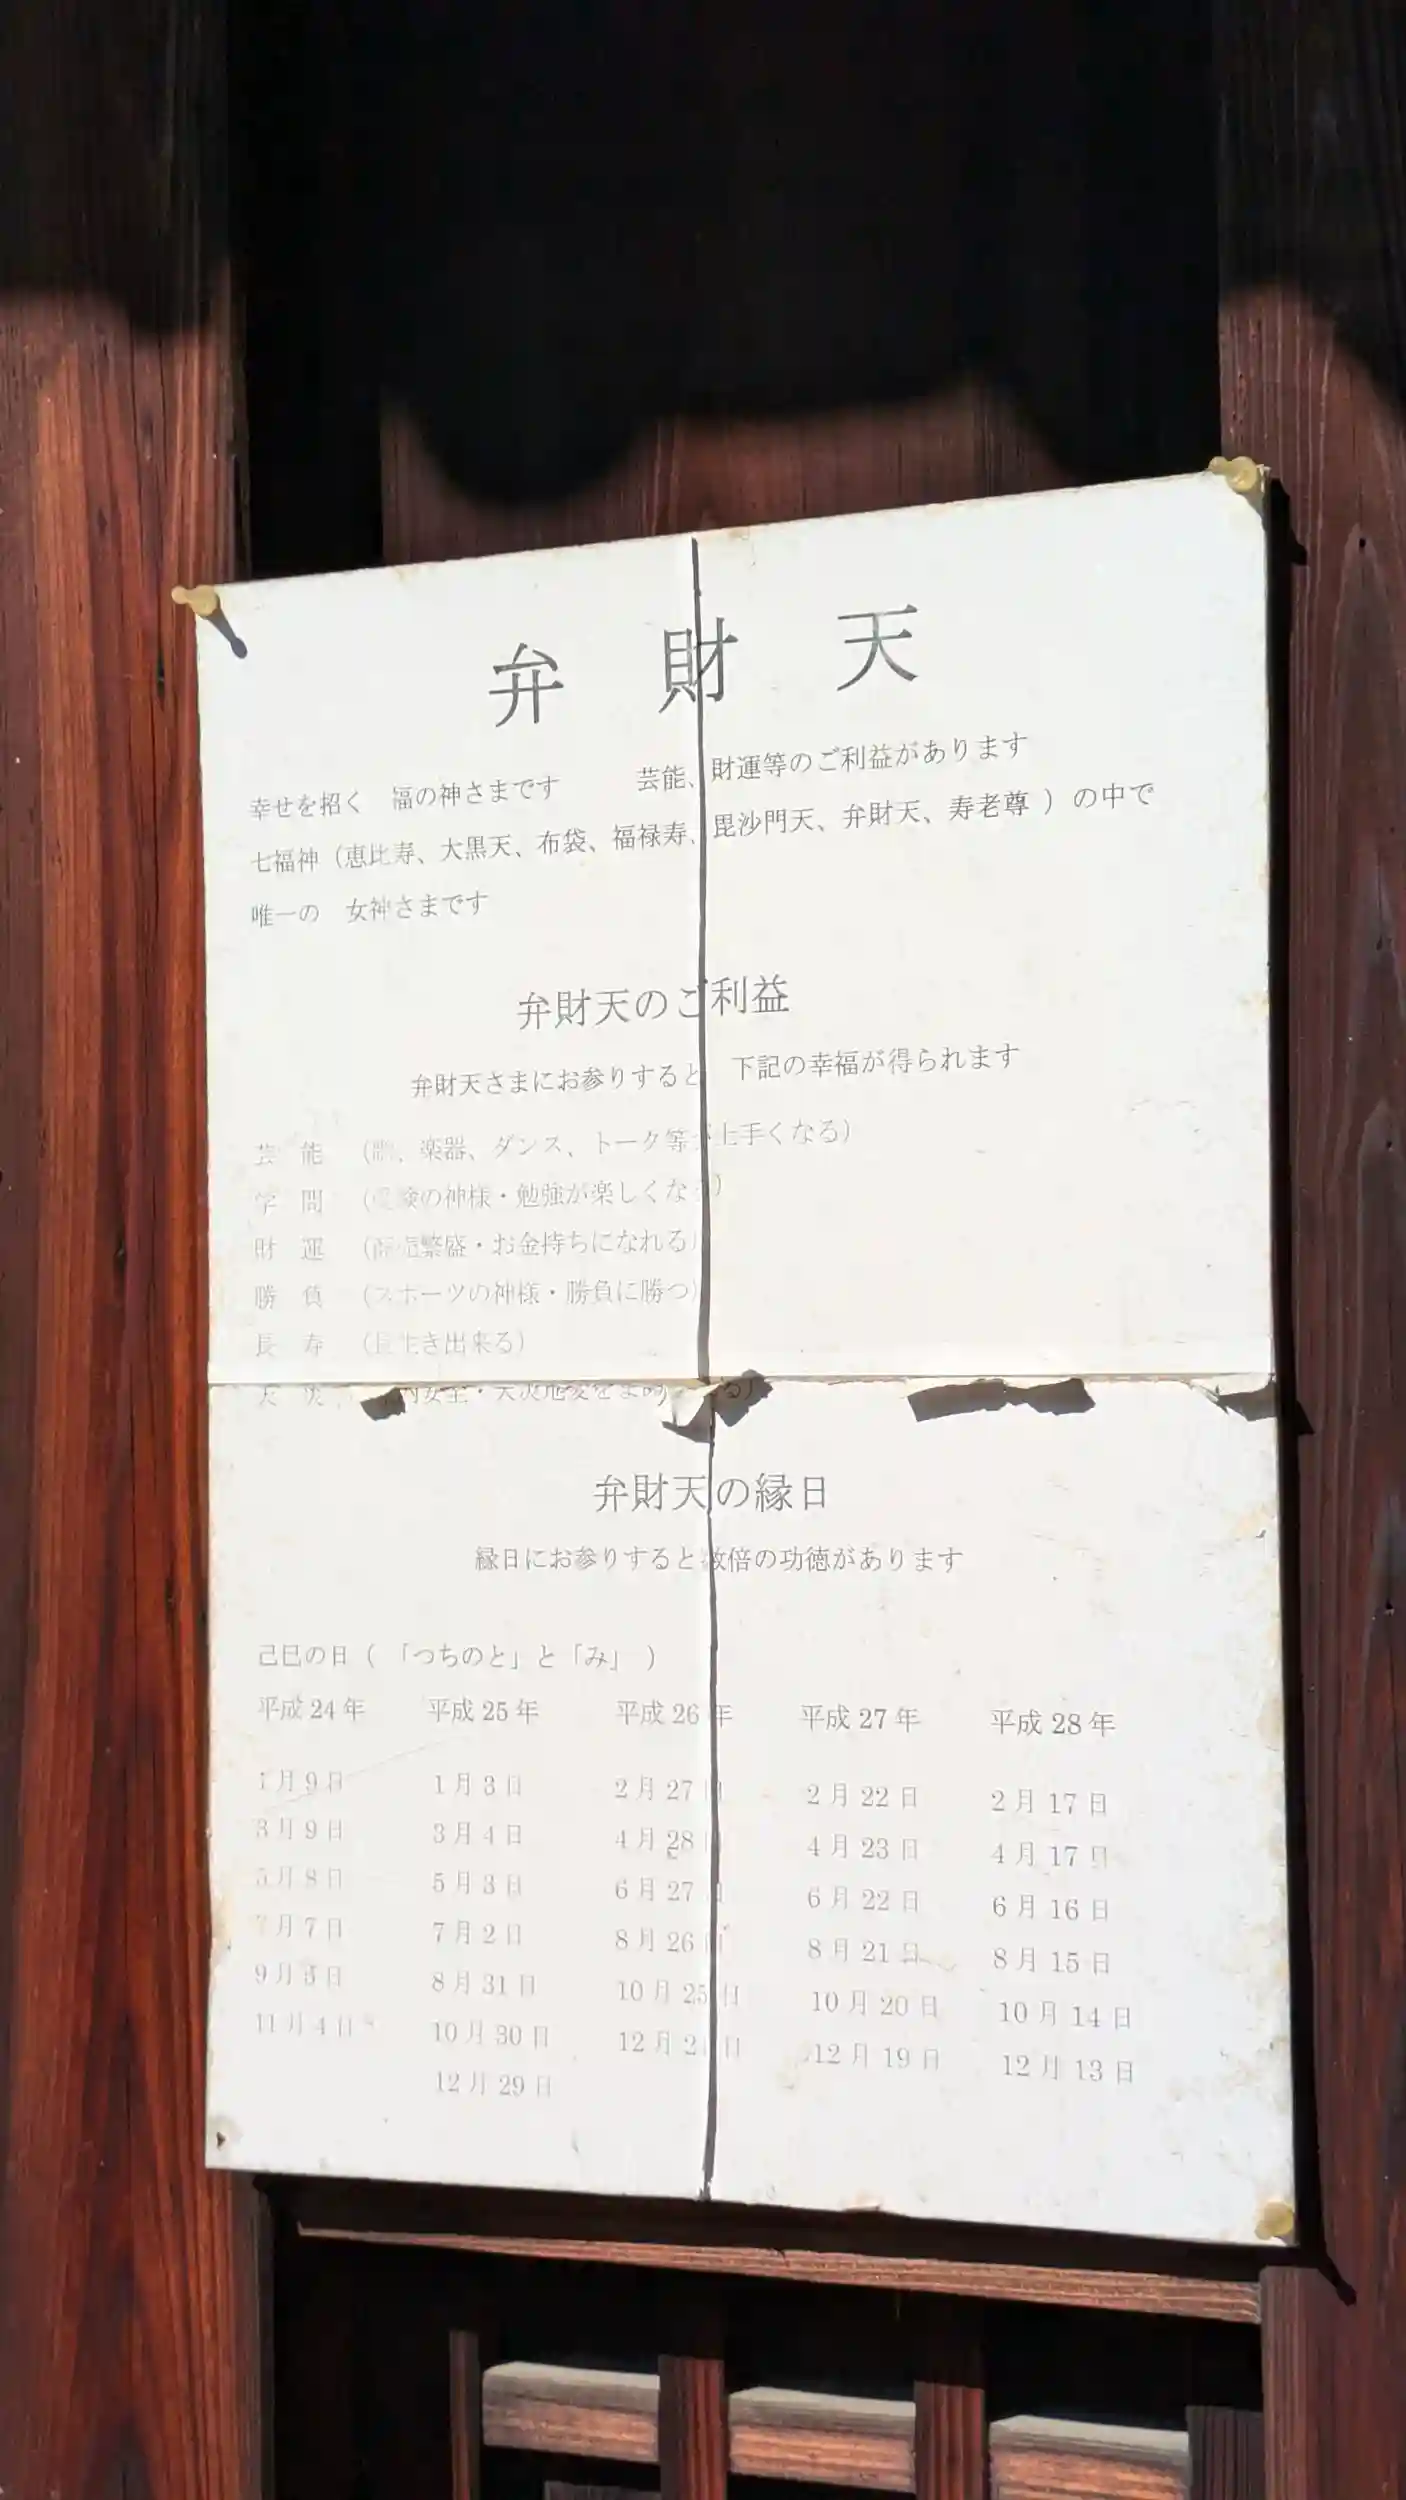 弁 財 天
幸せを招く 福の神さまです 芸能、財運等のご利益があります
七福神（恵比寿、大黒天、布袋、福禄寿、毘沙門天、弁財天、寿老尊 ）の中で
唯一の 女神さまです
弁財天のご利益
弁財天さまにお参りすると 下記の幸福が得られます
芸 能 （ 、楽器、ダンス、トーク等が上手くなる）
学 問 （受験の神様・勉強が楽しくなる）
財 運 （商売繁盛・お金持ちになれる）
勝 負 （スポーツの神様・勝負に勝つ）
長 寿 （長生き出来る）
・天災地変をまぬ
弁財天の縁日
縁日にお参りすると数倍の功徳があります
己巳の日（「つちのと」と「み」 ）
平成 24 年 平成 25 年 平成 26 年 平成 27 年 平成 28 年
1月 9日 1月 3日 2月 27日 2月 22日 2月 17日
3月 9日 3月 4日 4月 28日 4月 23日 4月 17日
5月 8日 5月 3日 6月 27日 6月 22日 6月 16日
7月 7日 7月 2日 8月 26日 8月 21日 8月 15日
9月 5日 8月 31日 10月 25日 10月 20日 10月 14日
11月 4日 10月 30日 12月 2 日 12月 19日 12月 13日
12月 29日